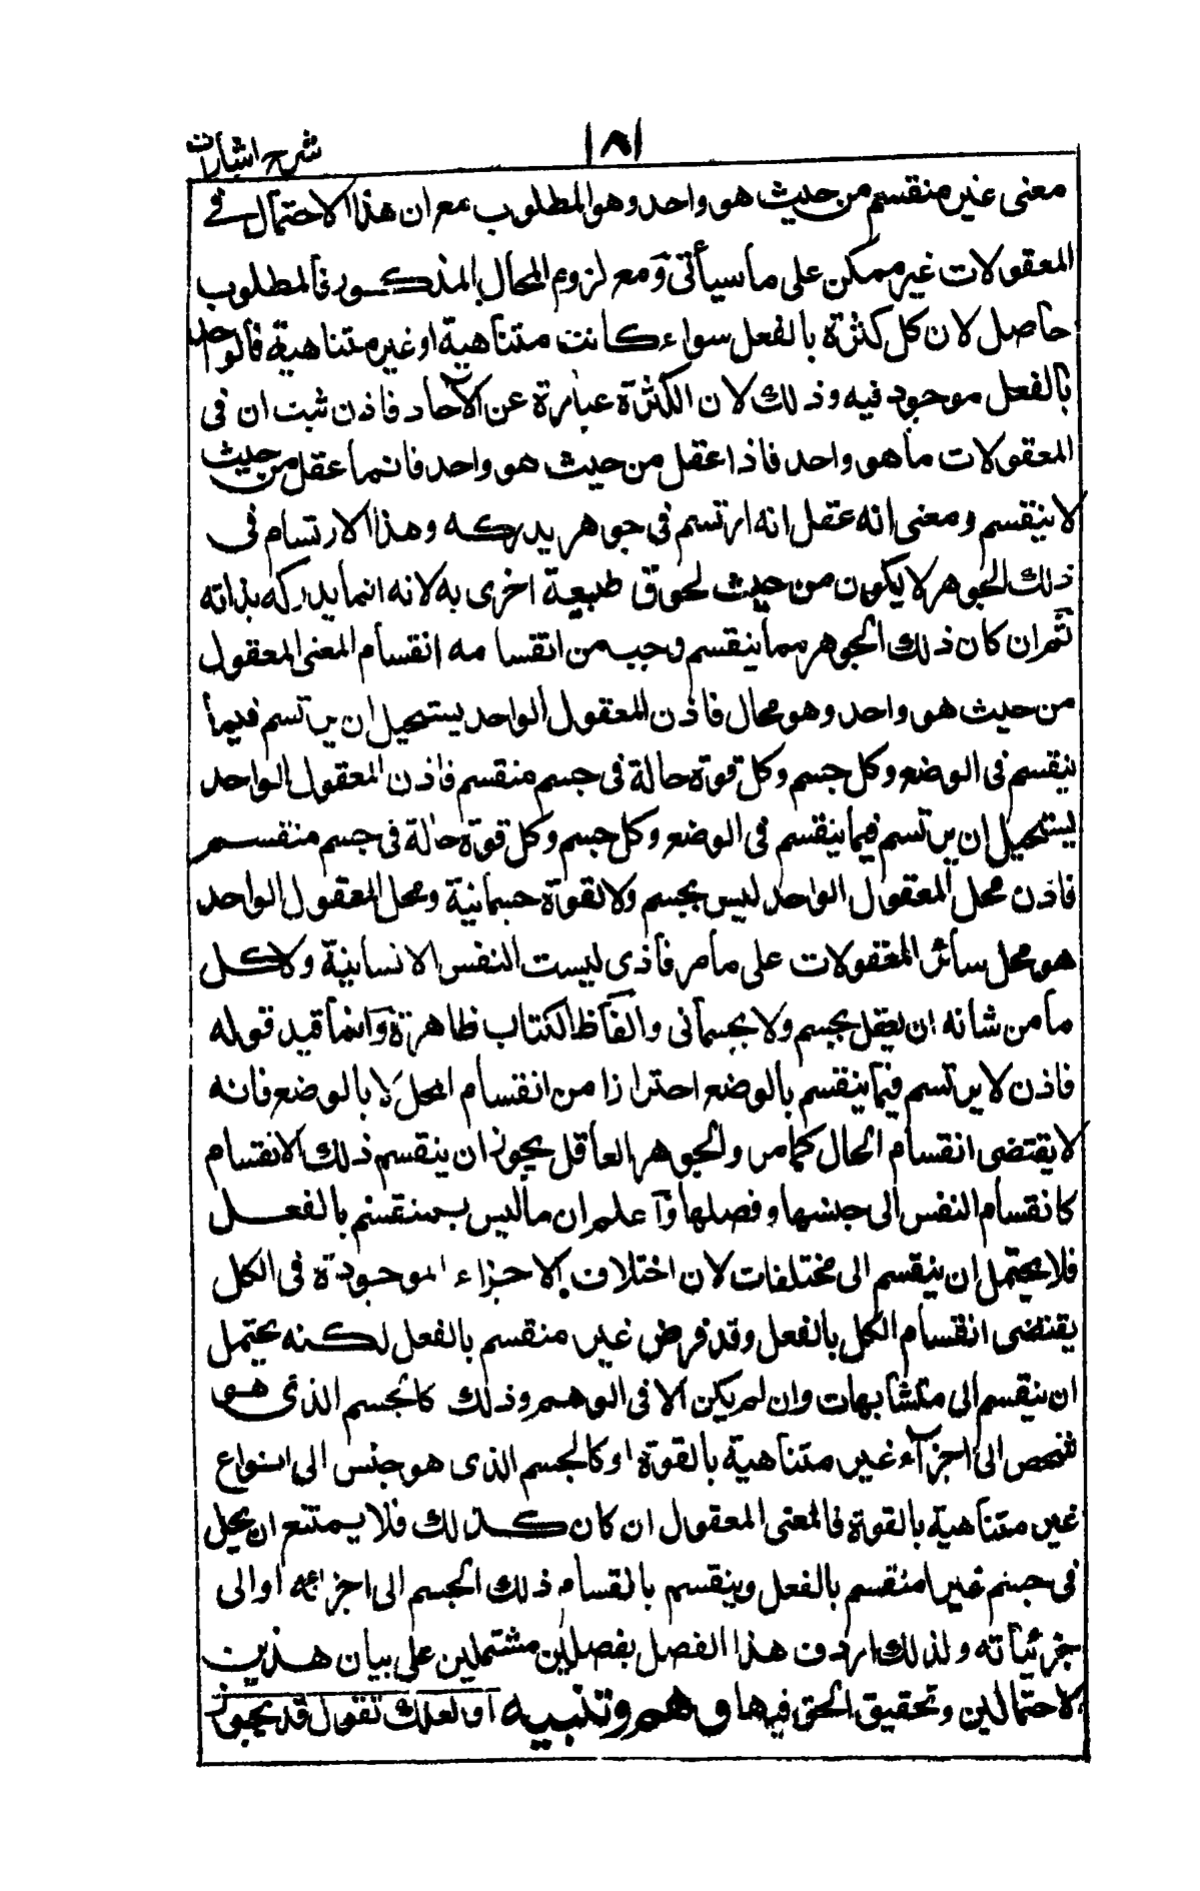 ١٨١
شرح اشارات
معنى غير منقسم من حيث هو واحد وهو المطلوب مع ان هذا الاحتمال فى
المعقولات غير ممكن على ما سيأتى ومع لزوم المحال المذكور فالمطلوب
حاصل لان كل كثرة بالفعل سواء كانت متناهية او غير متناهية فالواحد
بالفعل موجود فيه وذلك لان الكثرة عبارة عن الآحاد فاذن ثبت ان فى
المعقولات ما هو واحد فاذا عقل من حيث هو واحد فانما عقل من حيث
لا ينقسم ومعنى انه عقل انه ارتسم فى جوهر يدركه وهذا الارتسام فى
ذلك الجوهر لا يكون من حيث لحوق طبيعة اخرى به لانه انما يدركه بذاته
ثم ان كان ذلك الجوهر مما ينقسم وجب من انقسامه انقسام المعنى المعقول
من حيث هو واحد وهو محال فاذن المعقول الواحد يستحيل ان يرتسم فيما
ينقسم فى الوضع وكل جسم وكل قوة حالة فى جسم منقسم فاذن المعقول الواحد
يستحيل ان يرتسم فيما ينقسم فى الوضع وكل جسم وكل قوة حالة فى جسم منقسم
فاذن محل المعقول الواحد ليس بجسم ولا لقوة جسمانية ومحل المعقول الواحد
هو محل سائر المعقولات على ما مر فاذى ليست النفس الانسانية ولا كل
ما من شانه ان يعقل بجسم ولا بجسمانى والفاظ الكتاب ظاهرة وانما قيد قوله
فاذن لا يرتسم فيما ينقسم بالوضع احترازا من انقسام المحل لا بالوضع فانه
لا يقتضى انقسام الحال كما مر والجوهر العاقل يجوز ان ينقسم ذلك الانقسام
كانقسام النفس الى جنسها وفصلها وآعلم ان ما ليس بمنقسم بالفعل
فلا يحتمل ان ينقسم الى مختلفات لان اختلاف الاجزاء الموجودة فى الكل
يقتضى انقسام الكل بالفعل وقد فرض غير منقسم بالفعل لكنه يحتمل
ان ينقسم الى متشابهات وان لم يكن الا فى الوهم وذلك كالجسم الذى هو
شخص الى اجزآء غير متناهية بالقوة او كالجسم الذى هو جنس الى انواع
غير متناهية بالقوة فالمعنى المعقول ان كان كذلك فلا يمتنع ان يحل
فى جسم غير منقسم بالفعل وينقسم بالقسام ذلك الجسم الى اجزائه او الى
جزئياته ولذلك اردف هذا الفصل بفصلين مشتملين على بيان هذين
الاحتمالين وتحقيق الحق فيها وهم وتنبيه او لعلك تقول قد يجوز